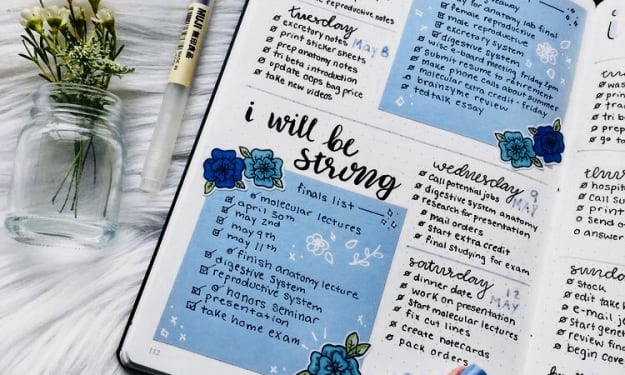 MUJI 無印良品
female reproductive notes
tuesday
May 8
excretory notes
print sticker sheets
prep anatomy notes
tri beta introduction
update oops bag price
take new videos
study for anatomy lab final
female reproductive
male reproductive
excretory system
digestive system
wise e-board meeting friday 6pm
submit resume to retirement
make phone calls about summer
molecular extra credit - friday
brainzyme review
ted talk essay
i will be
strong
finals list
molecular lectures
april 30th
may 2nd
may 9th
may 11th
finish anatomy lecture
digestive system
reproductive system
honors seminar
presentation
take home exam
112
wednesday 9
MAY
call potential jobs
digestive system anatomy
research for presentation
mail orders
start extra credit
final studying for exam
saturday 12
MAY
dinner date
work on presentation
start molecular lectures
fix cut lines
create notecards
pack orders
was
print
trans
tri b
print
prepa
go to
thurs
hospita
call su
print
send o
answer
sunday
stock
edit take h
e-mail je
start gene
review fina
begin cove